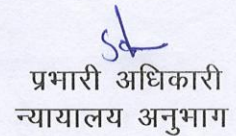 प्रभारी अधिकारी
न्यायालय अनुभाग